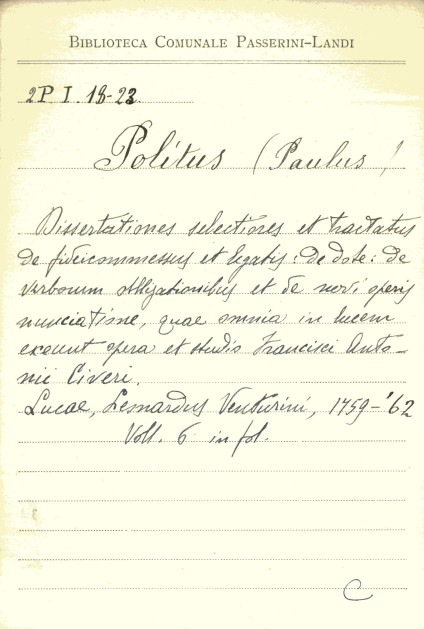 BIBLIOTECA COMUNALE PASSERINI-LANDI
2P I. 18-23.
Politus (Paulus)
Dissertationes selectiores et tractatus
de fideicommessus et legatis: de dote: de
verborum obligationibus et de novi operis
nunciatione, quae omnia in lucem
exeunt opera et studio Francisci Anto-
nii Civeri.
Lucae, Leonardus Venturini, 1759-'62
Voll. 6 in fol.
C